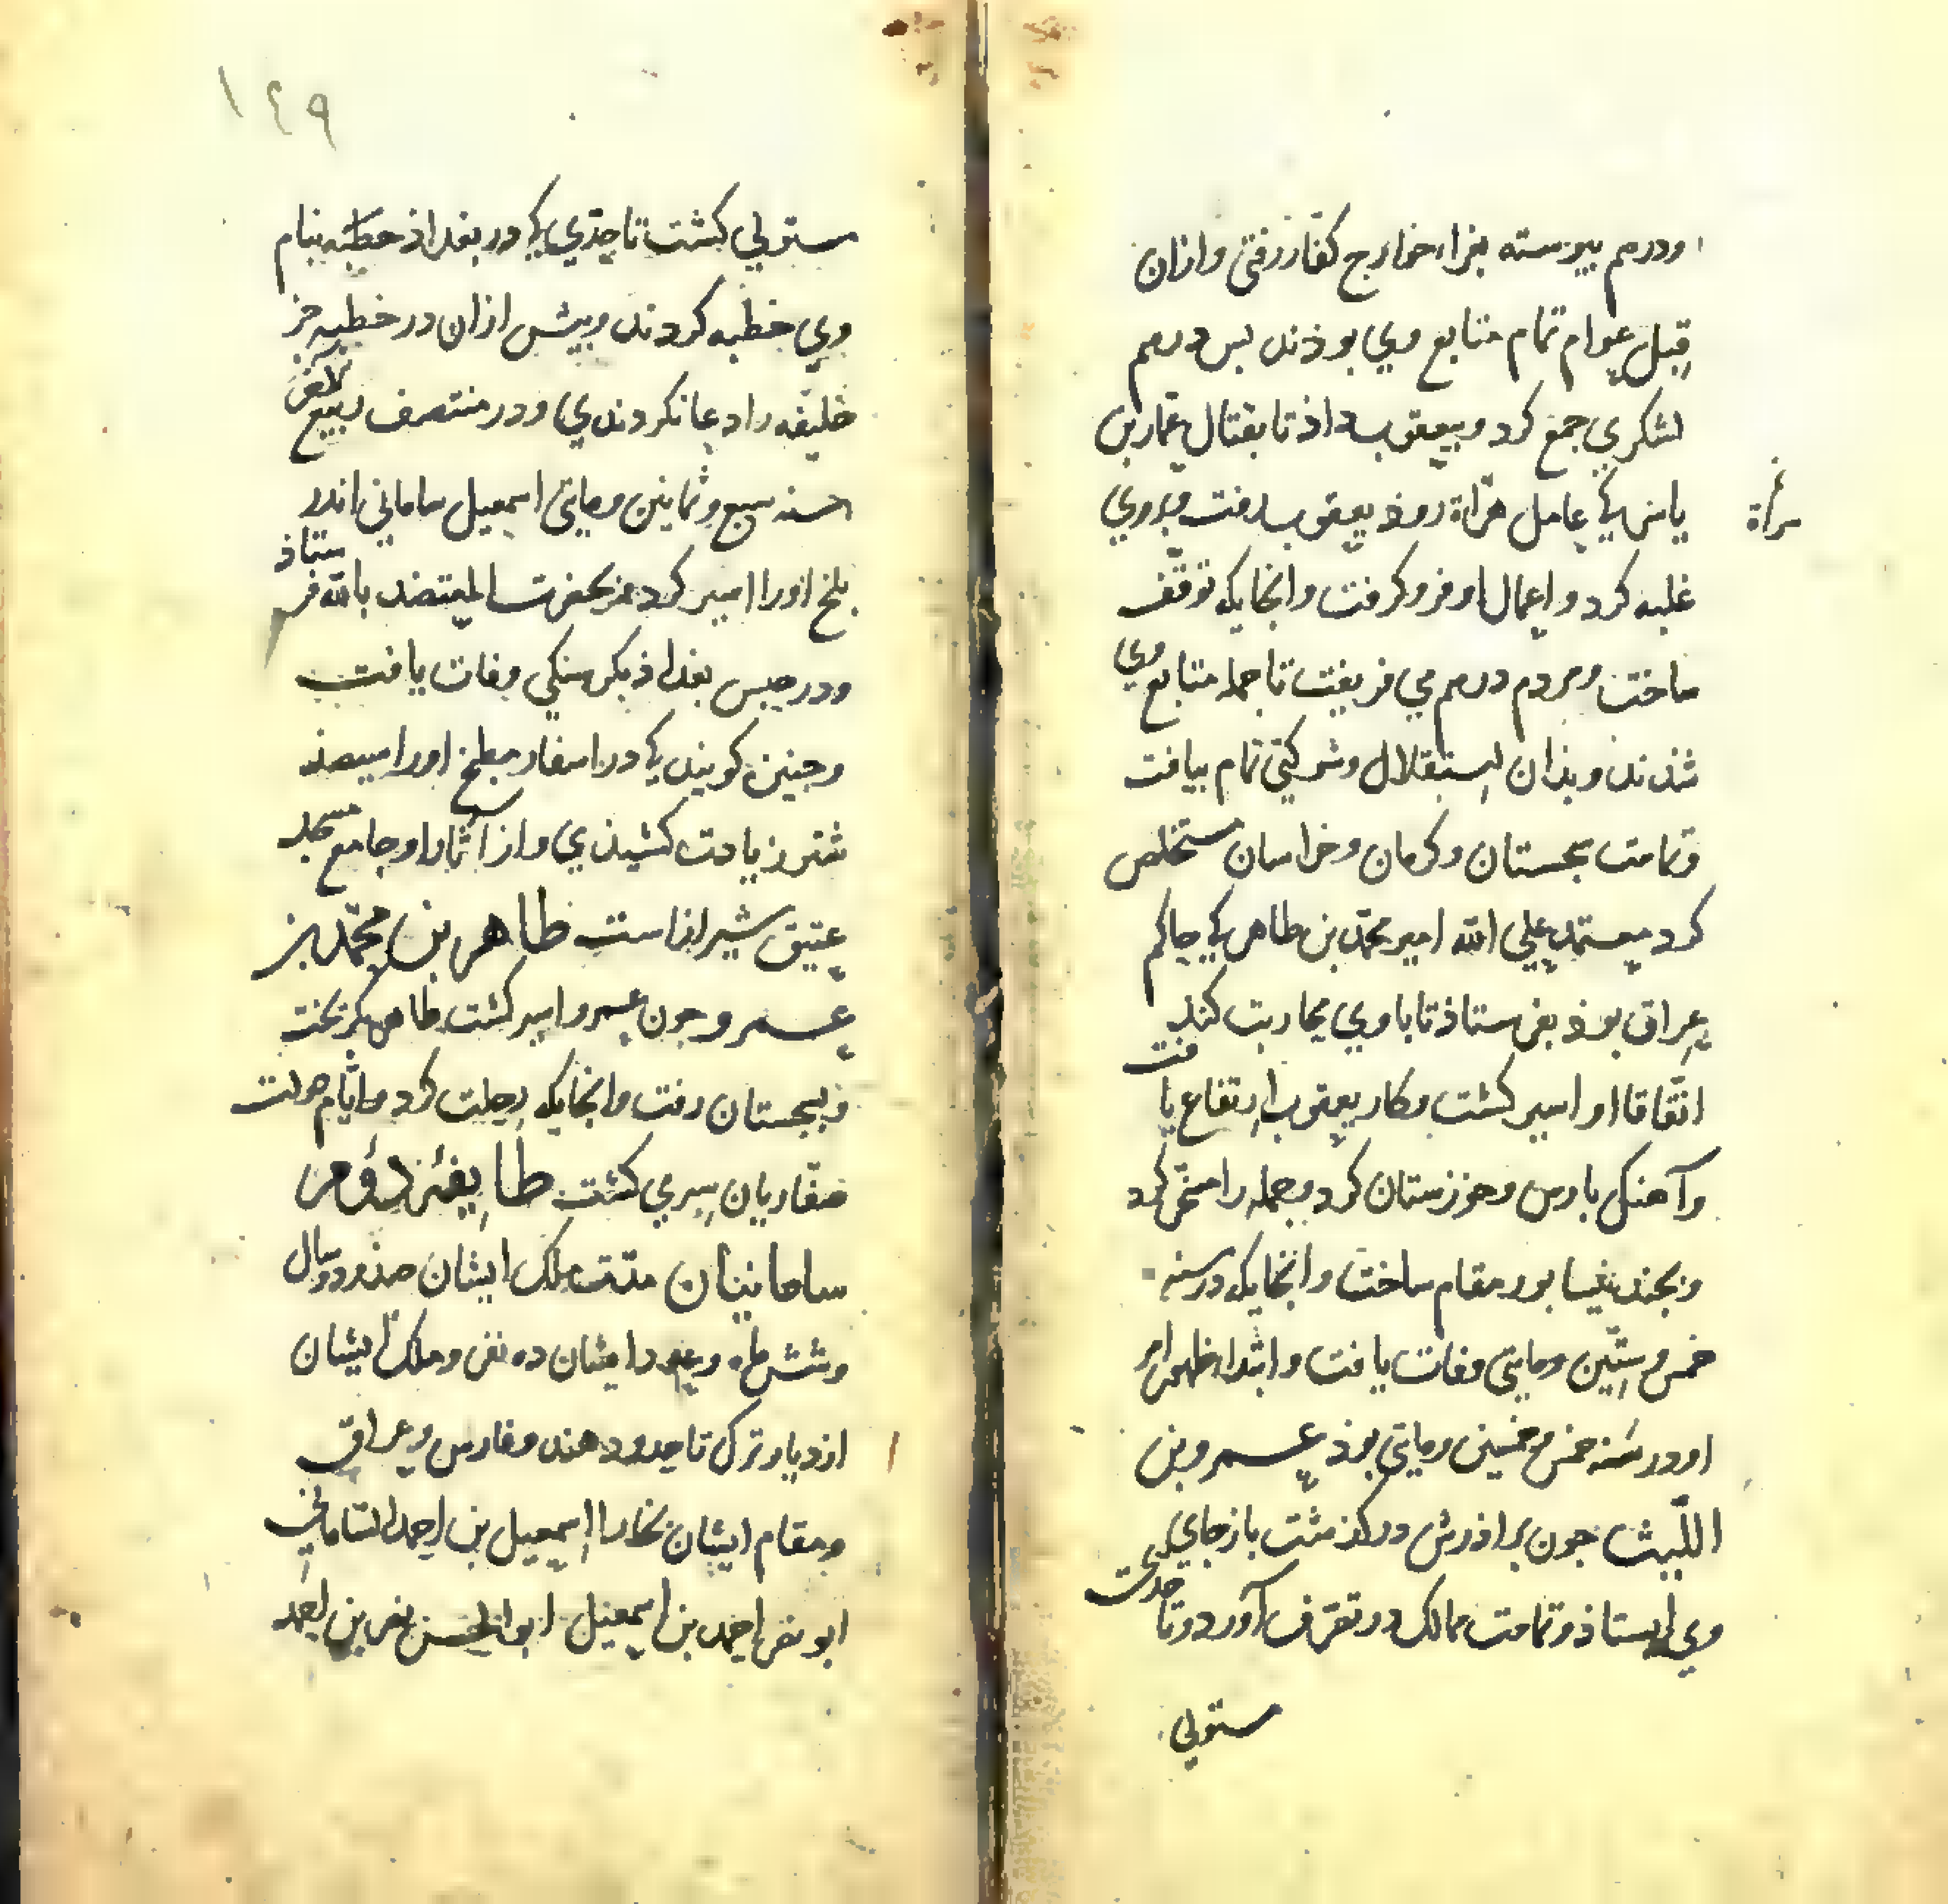 ودرهم پیوسته بغزاء خوارج کفار رفتی وازان
قبل عوام تمام متابع وي بوذند بس درهم
لشکري جمع کرد و بیعقوب داذ تا بقتال عمار بن
یاسر کي عامل هراة بوذ یعقوب برفت و بر وي
هراة
غلبه کرد و اعمال او فرو کرفت وانجایکه توقف
ساخت ومردم درهم می فریفت تا جمله متابع وي
شذند و بذان استقلال و شوکتی تمام بیافت
وتمامت سجستان وکرمان وخراسان مستخلص
کرد معتمد علي الله امیر محمد بن طاهر کي حاکم
عراق بوذ بفرستاذ تا با وي محاربت کند
اتفاقا او اسیر کشت وکار یعقوب ارتفاع یافت
وآهنک بارس وخوزستان کرد وجمله را مسخر کرد
وبجند نیسابور مقام ساخت وانجایکه در سنه
خمس وستین ومایتی وفات یافت وابتداء ظهور امر
او در سنه خمس وخمسین ومایتی بوذ عمرو بن
اللیث جون براذرش درکذشت باز جاي
وي ایستاذ وتمامت ممالک در تصرف آورد وتا حدي
مستولي
١٤٩
مستولي کشت تا حدي کي در بغداذ خطبه بنام
وي خطبه کردند وبیش ازان در خطبه جز
خلیفه را دعا نکردندي ودر منتصف ربیع الآخر
سنه سبع وثمانین ومایتی اسمعیل سامانی اندر
بلخ اورا اسیر کرد بحضرت المعتضد بالله فرستاذ
ودر حبس بغداذ وفات یافت
وجنین کویند کي در اسفار مطبخ اورا سیصذ
شتر زیادت کشیذي واز آثار او جامع مسجد
عتیق شیرازست طاهر بن محمد بن
عمرو جون عمرو اسیر کشت طاهر بکریخت
وبسجستان رفت وانجایکه رحلت کرد وایام دولت
صفاریان سبري کشت طایفه دوم
سامانیان مدت ملک ایشان صذ ودو سال
وشش ماه وعدد ایشان ده نفر وملک ایشان
از دیار ترک تا حدود هند وفارس وعراق
ومقام ایشان بخارا اسمعیل بن احمد السامانی
ابو نصر احمد بن اسمعیل ابو الحسن نصر بن احمد